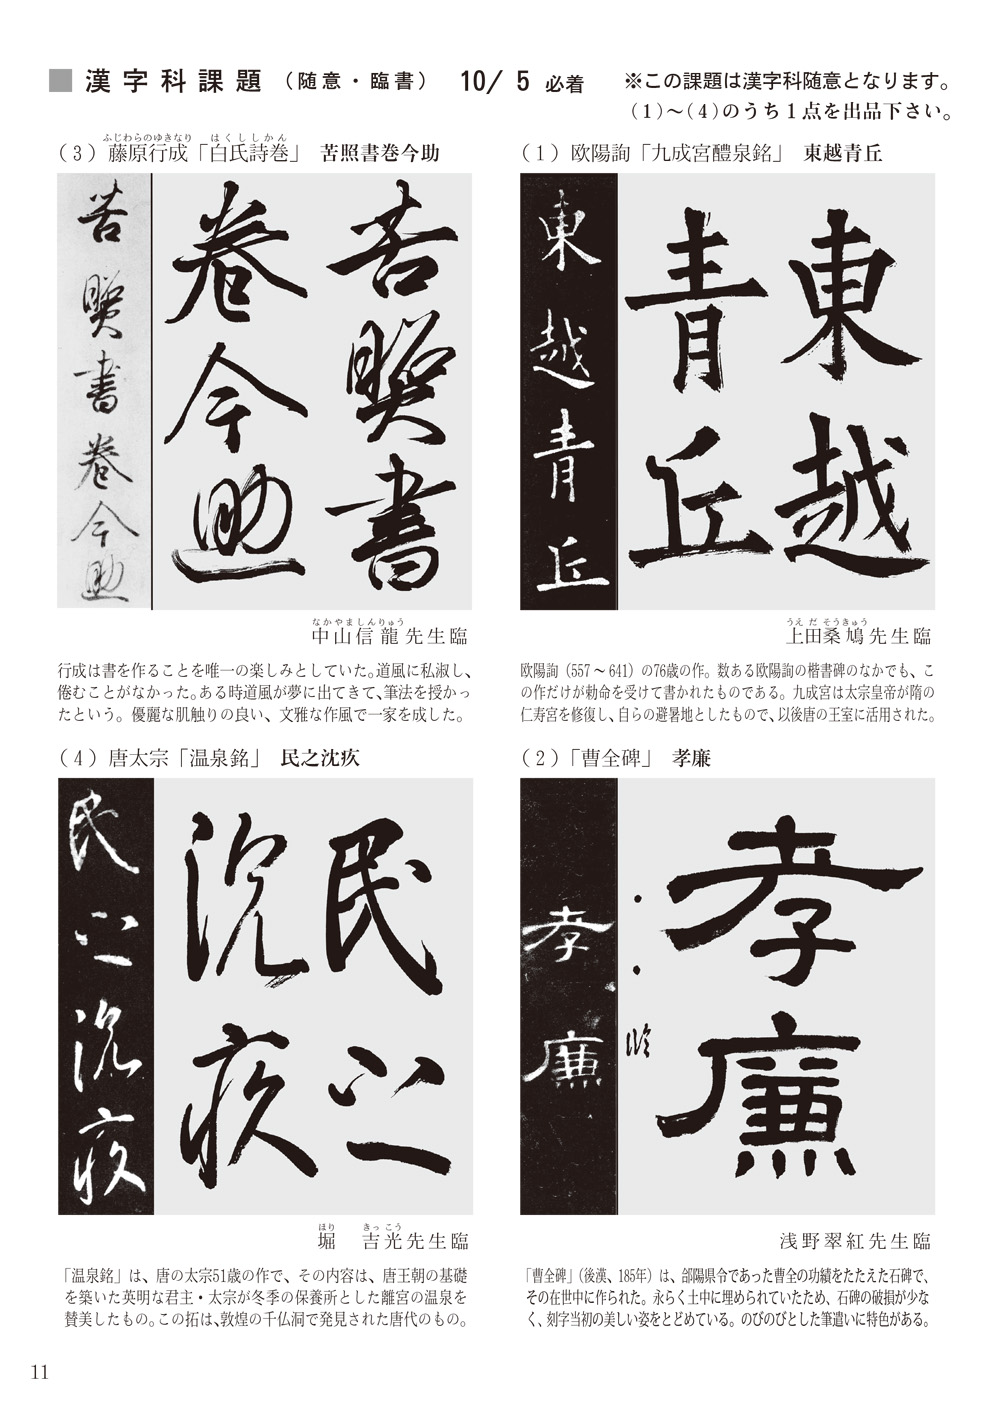 ■ 漢字科課題（随意・臨書） 10/ 5 必着
※この課題は漢字科随意となります。
(1)～(4)のうち１点を出品下さい。
（1）欧陽詢「九成宮醴泉銘」 東越青丘
東越青丘
東越
青丘
うえだそうきゅう
上田桑鳩先生臨
欧陽詢（557～641）の76歳の作。数ある欧陽詢の楷書碑のなかでも、こ
の作だけが勅命を受けて書かれたものである。九成宮は太宗皇帝が隋の
仁寿宮を修復し、自らの避暑地としたもので、以後唐の王室に活用された。
（2）「曹全碑」 孝廉
孝廉
孝廉
臨
浅野翠紅先生臨
「曹全碑」（後漢、185年）は、郃陽県令であった曹全の功績をたたえた石碑で、
その在世中に作られた。永らく土中に埋められていたため、石碑の破損が少な
く、刻字当初の美しい姿をとどめている。のびのびとした筆遣いに特色がある。
ふじわらのゆきなり はくししかん
（3）藤原行成「白氏詩巻」 苦照書巻今助
苦照書巻今助
苦照書
巻今助
なかやましんりゅう
中山信龍先生臨
行成は書を作ることを唯一の楽しみとしていた。道風に私淑し、
倦むことがなかった。ある時道風が夢に出てきて、筆法を授かっ
たという。優麗な肌触りの良い、文雅な作風で一家を成した。
（4）唐太宗「温泉銘」 民之沈疚
民之沈疚
民之
沈疚
ほり きっこう
堀 吉光先生臨
「温泉銘」は、唐の太宗51歳の作で、その内容は、唐王朝の基礎
を築いた英明な君主・太宗が冬季の保養所とした離宮の温泉を
賛美したもの。この拓は、敦煌の千仏洞で発見された唐代のもの。
11